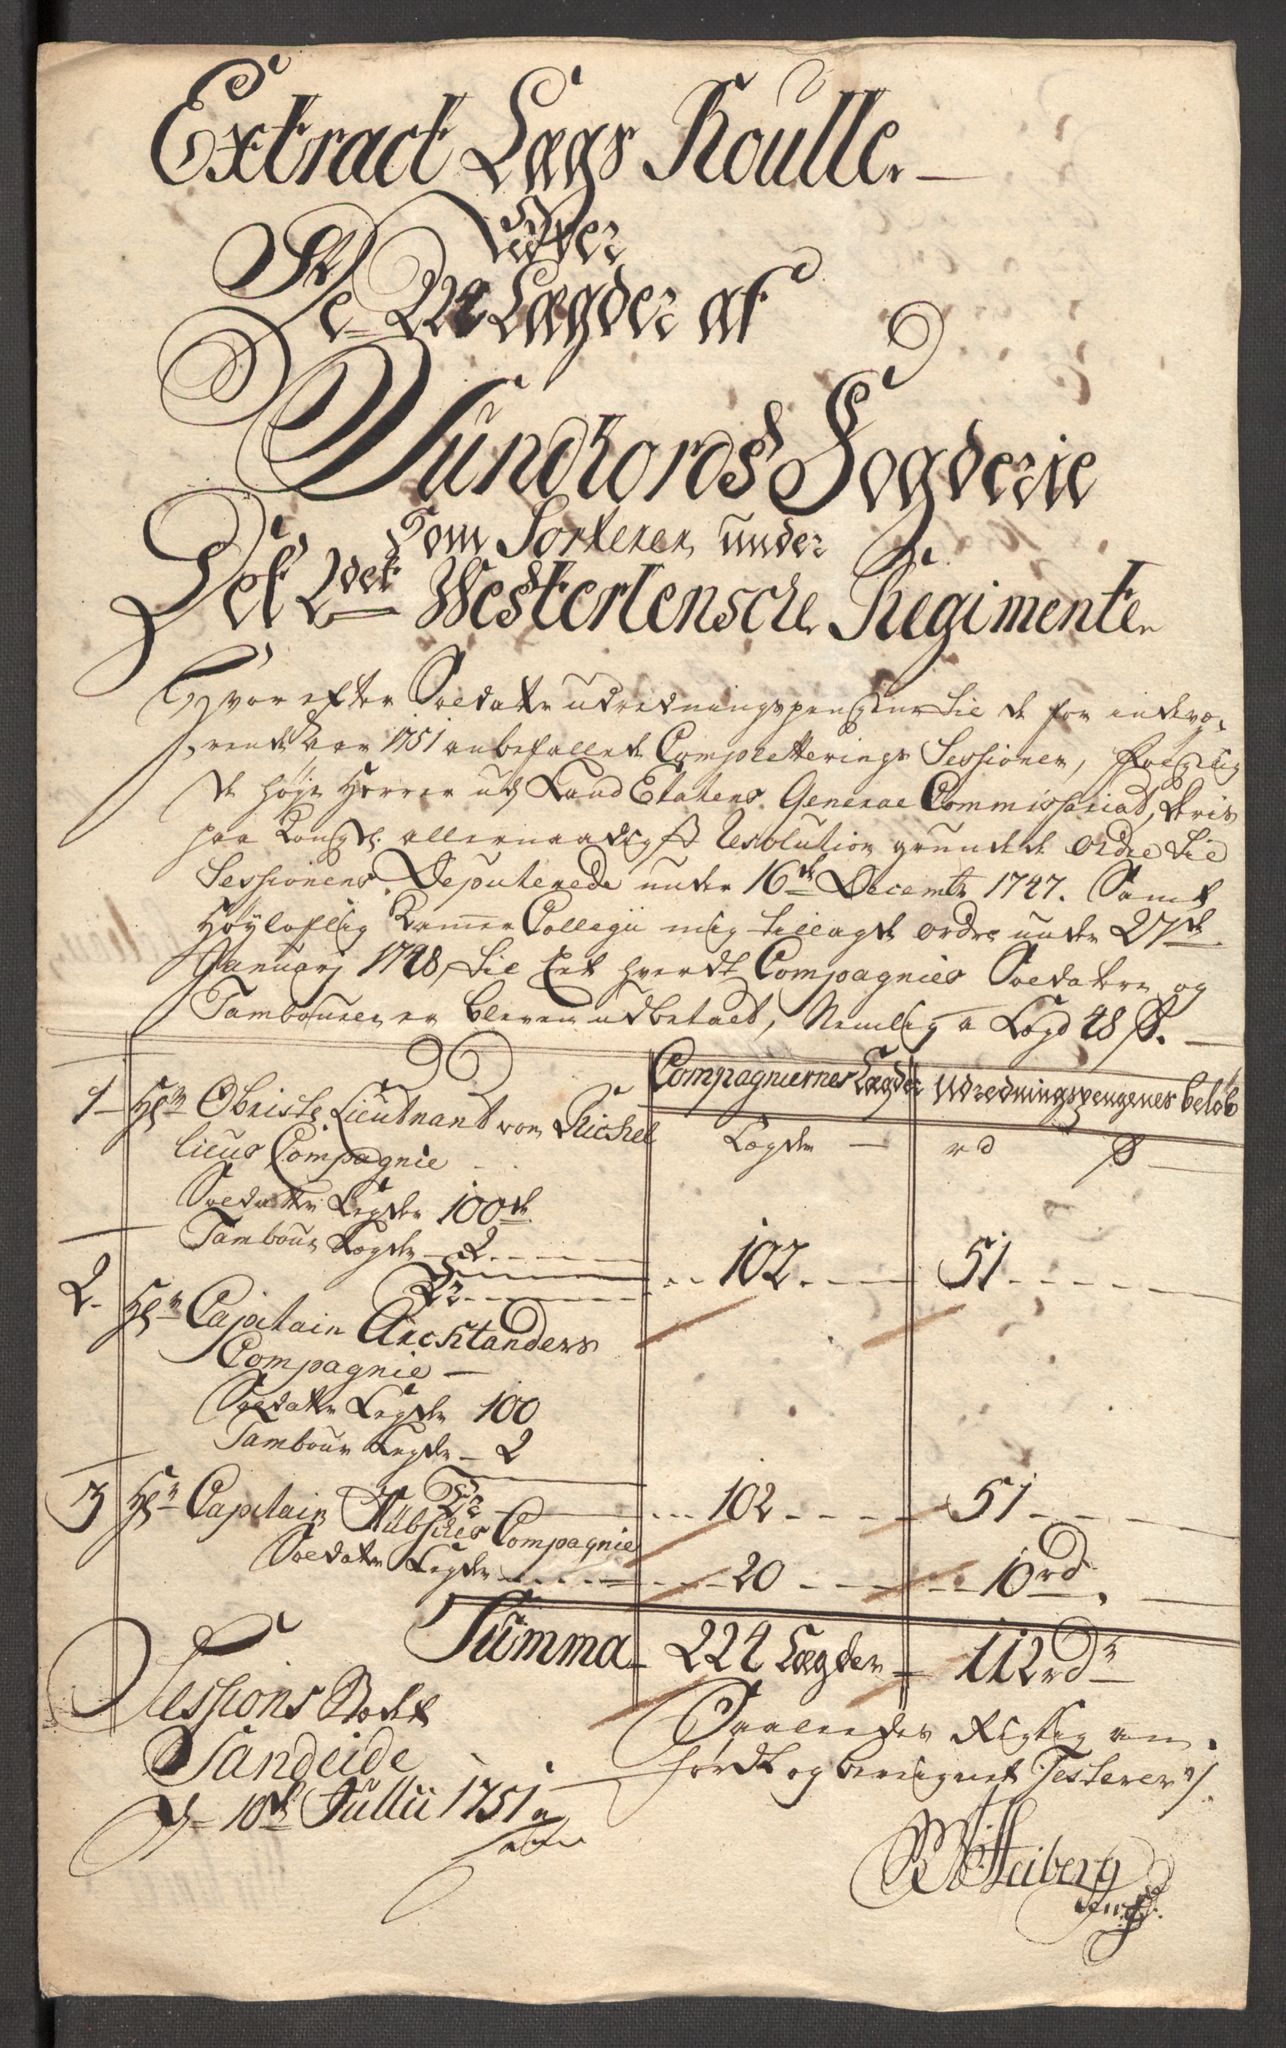 Extract Lægs Roulle.
Over
De 224 Lægder af
Sundhords Fogderie
Som Sorterer under
Det 2det Westerlensche Regimente
Hvor efter Soldatte udredningspengene til de for indevæ-
rende Aar 1751 anbefallede Compretterings Sessioner, følgelig
de høje Herrer ud Land Etatens General Commissariat, deris
paa Kongl: allernaadigst Resolution grundede ordre til
Sessionens Deputerede under 16de Decembr 1747. Samt
Høyloflig Cammer Collegii mig tillagde ordre under 27de
Januarj 1748, til Eet hverdt Compagnies Soldatter og
Tambourer er bleven udbetalt, Nemlig a Lægd 48 s.
Compagniernes Lægder Udredningspengenes beløb
Lægder rd s
1 Hr Obriste Lieutnant von Richel
lieus Compagnie
Soldatte Legder 100de
Tambour Lægder 2 102 51
2. Hr Capitain Arestanders
Compagnie
Soldatte Legder 100
Tambour Legder 2
102 51
3 Hr Capitain Hübsches Compagnie
Soldatte Legder 20 10rd
Summa 224 Lægder 112rdr
Sessions Stædet
Sandeide
d 10de Jullii 1751
Saaledes Rigtig an-
førdt og beregnet Testerer
Heiberg